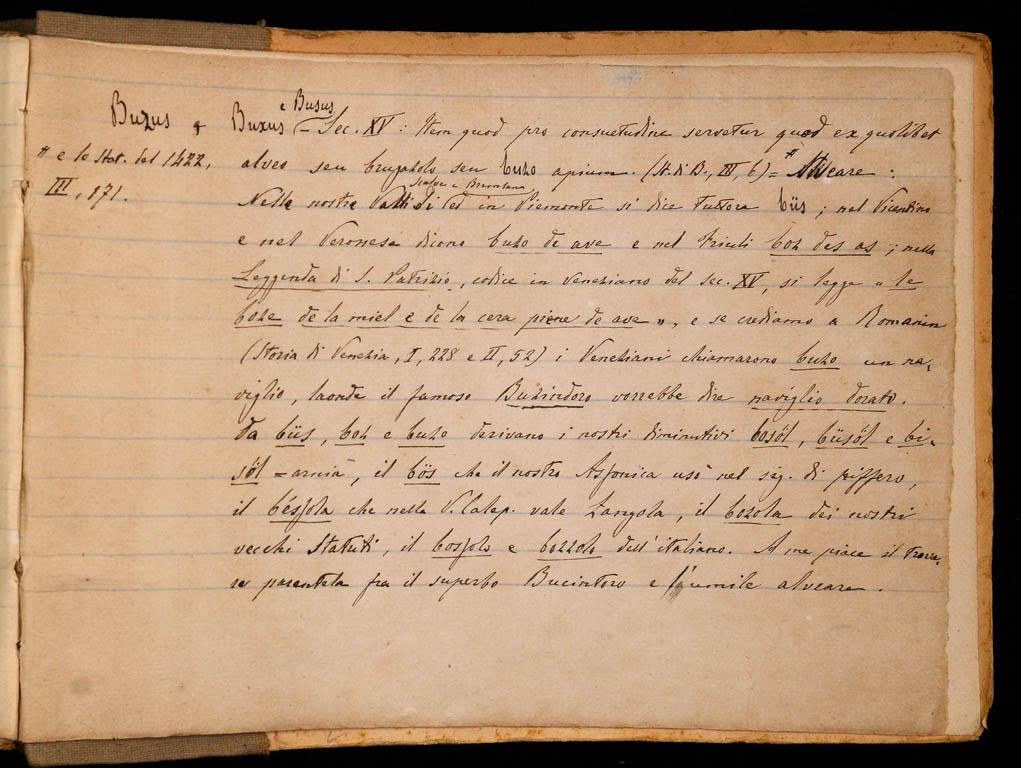 Buzus e Buxus e Busus – Sec. XV: Item quod pro consuetudine servetur quod ex quolibet
# e lo Stat. del 1422, III, 171.
alveo seu brugatolo seu buzo apium. (St. di B., III, 6) = # Alveare:
Nelle nostre Valli di Scalve e Brembana ed in Piemonte si dice tuttora büs; nel Vicentino
e nel Veronese dicono buzo de ave e nel Friuli boz des as; nella
Leggenda di S. Patrizio, codice in veneziano del sec. XV, si legge « le
boze de la miel e de la cera piene de ave », e se crediamo a Romanin
(Storia di Venezia, I, 228 e II, 52) i Veneziani chiamarono buzo un na-
viglio, laonde il famoso Buzindoro vorrebbe dire naviglio dorato.
Da büs, boz e buzo derivano i nostri diminutivi bosöl, büsöl e bi-
söl = arnia, il bös che il nostro Assonica usò nel sig. di piffero,
il béssola che nella V. Calep. vale Zangola, il bozola dei nostri
vecchi Statuti, il bossolo e bozzolo dell'italiano. A me piace il trova-
re parentela fra il superbo Bucintoro e l'umile alveare.